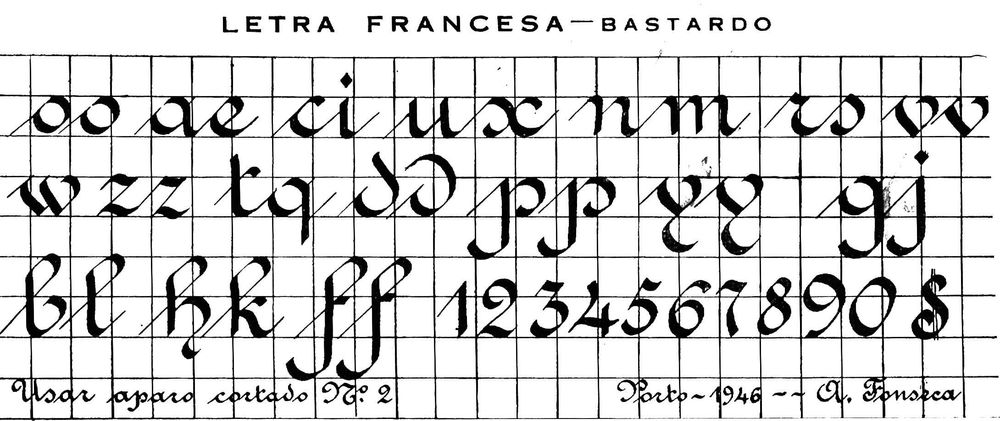 LETRA FRANCESA—BASTARDO
oo ae ci ux n m rs vv
w zz tq dd pp yy gj
bl hk ff 1234567890$
Usar aparo cortado Nº. 2 Porto-1946 -- A. Fonseca